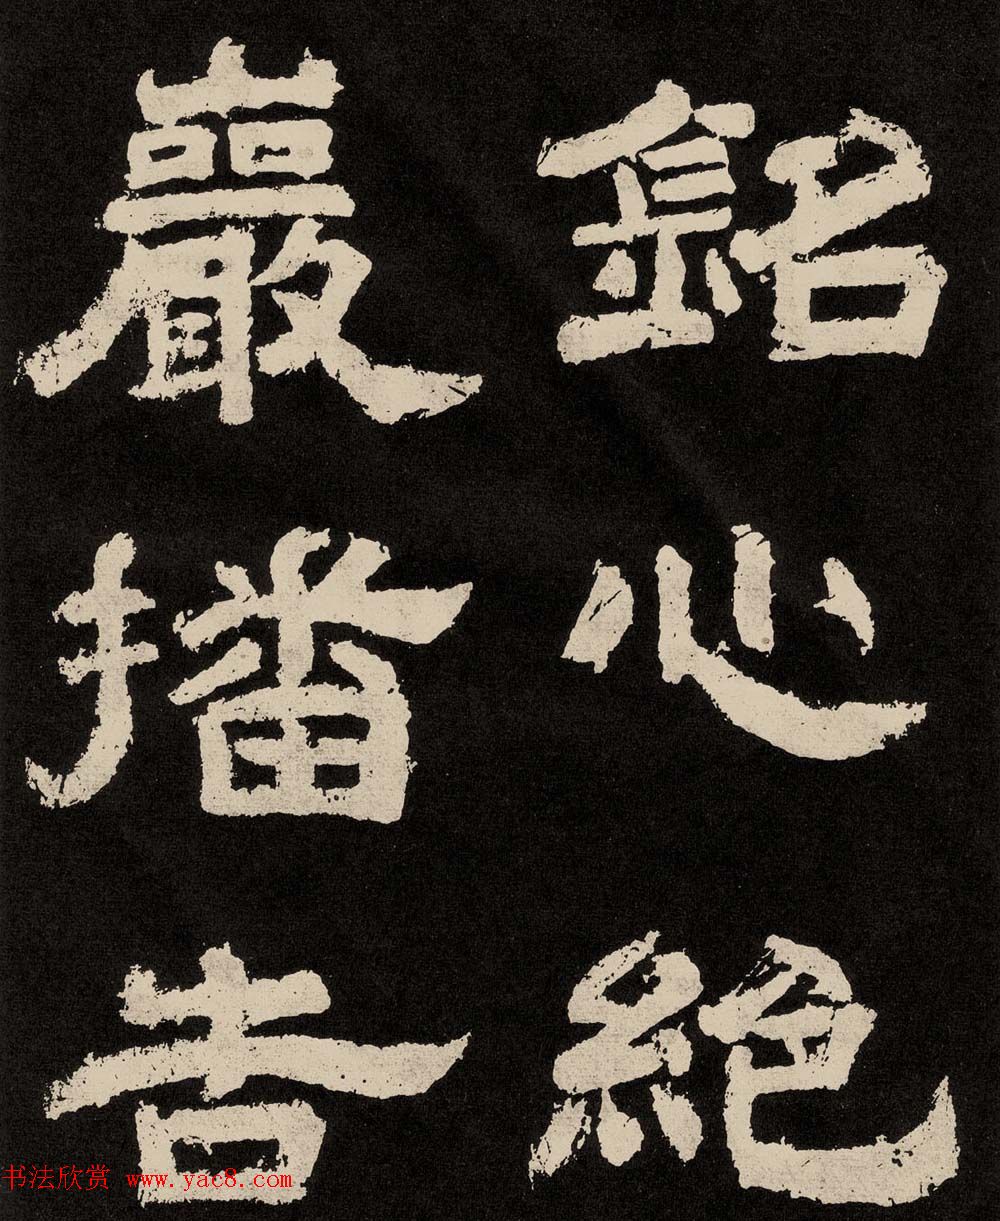 銘心絕
巖播告
书法欣赏 www.yac8.com